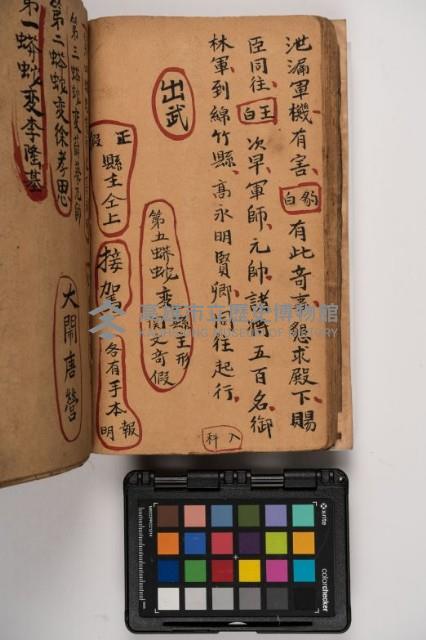 泄漏軍機有害、豹白有此奇事、懇求殿下賜
臣同往、王白次早、軍師、元帥、諸將、五百名、御
林軍到綿竹縣、高永明賢卿、同往起行、
入科
出武
第五蟒蛇變縣主形
奇假
正
假
縣主仝上
接
各有手本
報
明
第三蟒蛇變
第二蟒蛇变徐孝思
第一蟒蛇变李隆基
大鬧唐營
高雄市立歷史博物館
KAOHSIUNG MUSEUM OF HISTORY
x-rite
colorchecker